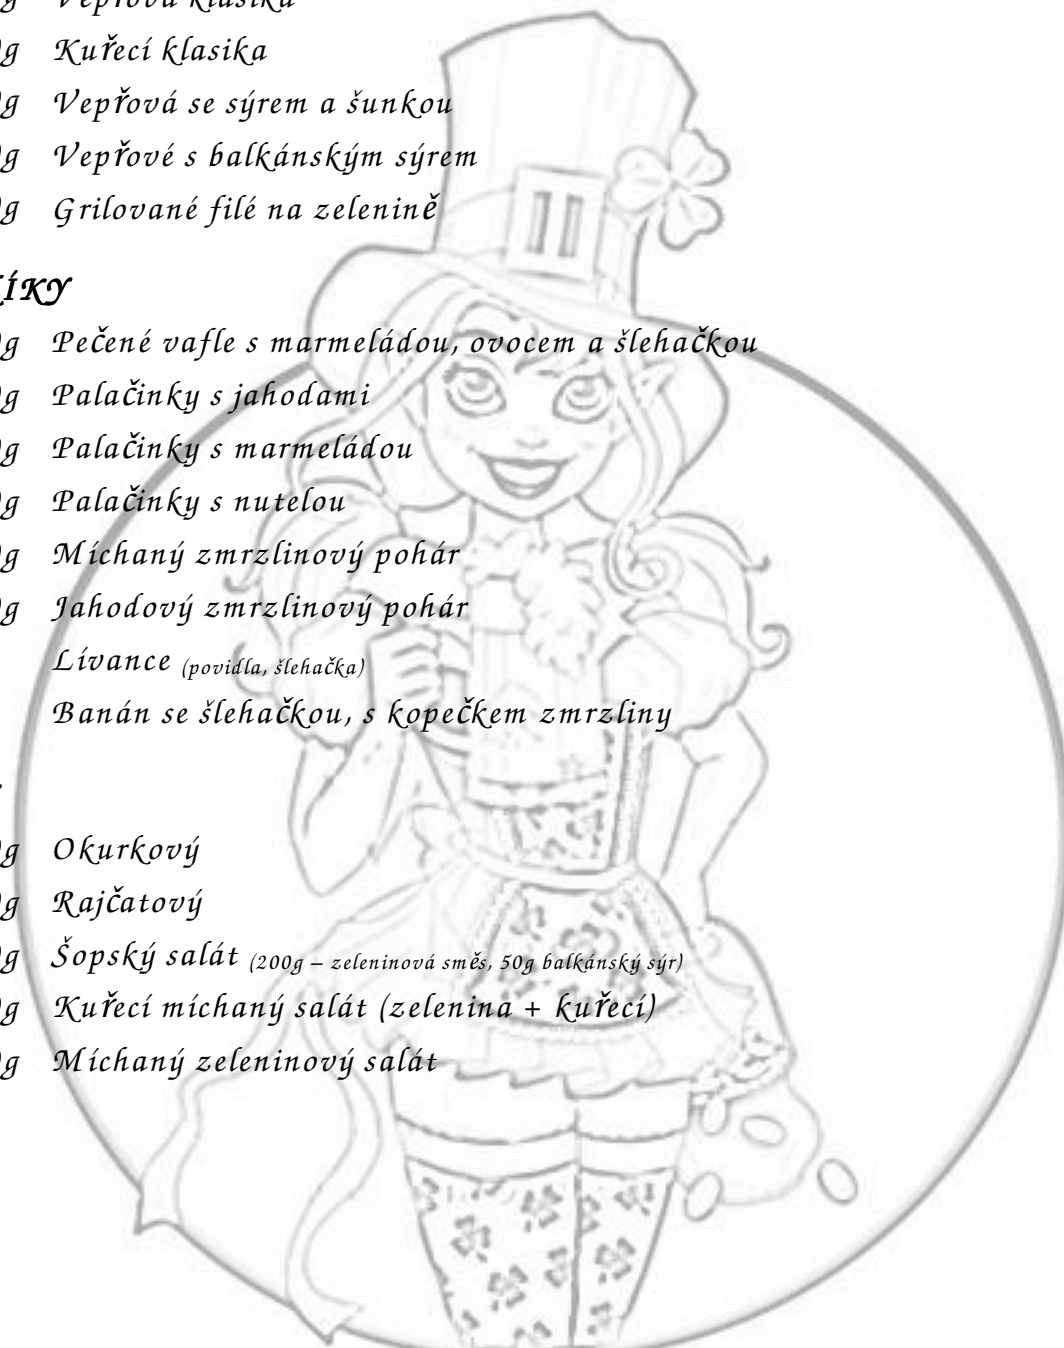 g Vepřová klasika
g Kuřecí klasika
g Vepřová se sýrem a šunkou
g Vepřové s balkánským sýrem
g Grilované filé na zelenině
ÍKY
g Pečené vafle s marmeládou, ovocem a šlehačkou
g Palačinky s jahodami
g Palačinky s marmeládou
g Palačinky s nutelou
g Míchaný zmrzlinový pohár
g Jahodový zmrzlinový pohár
Lívance (povidla, šlehačka)
Banán se šlehačkou, s kopečkem zmrzliny
g Okurkový
g Rajčatový
g Šopský salát (200g – zeleninová směs, 50g balkánský sýr)
g Kuřecí míchaný salát (zelenina + kuřecí)
g Míchaný zeleninový salát